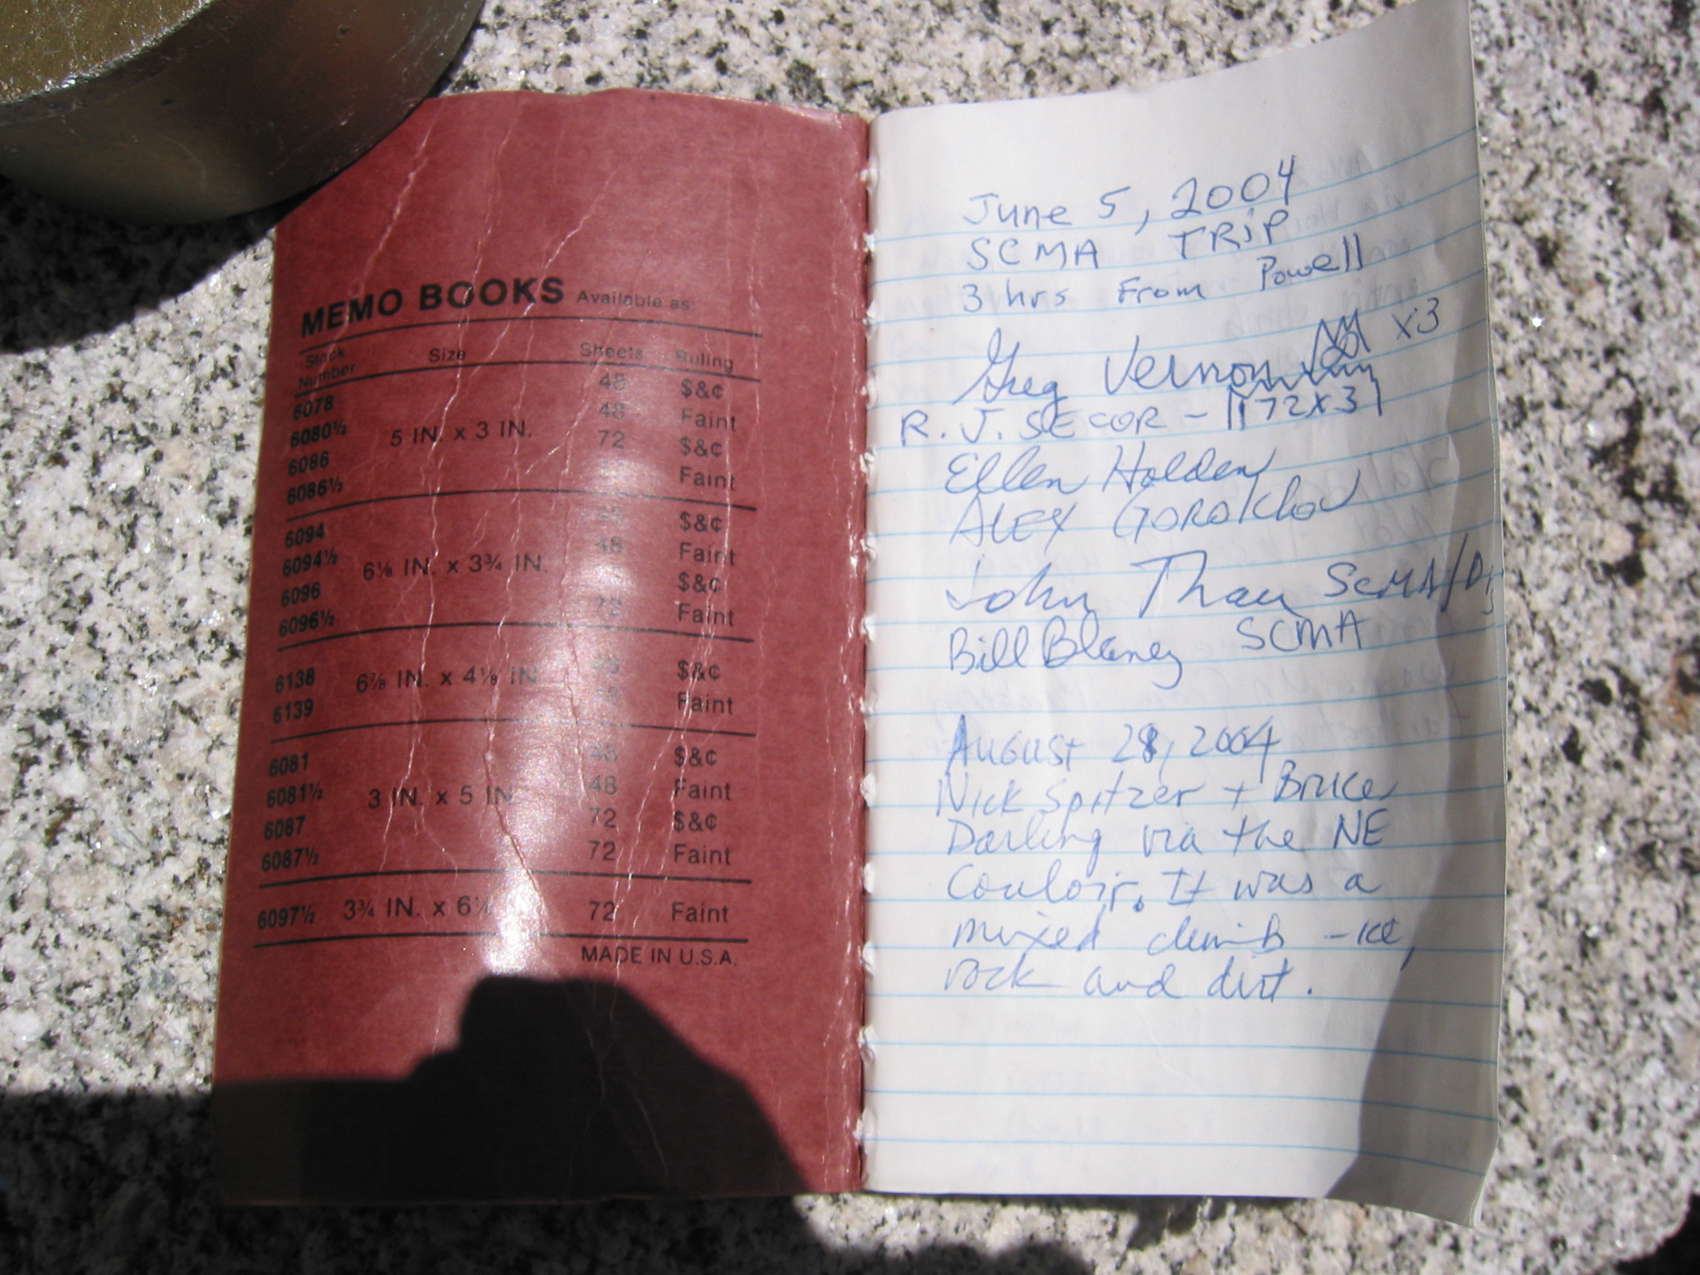 MEMO BOOKS Available as
Stock Number Size Sheets Ruling
6078 48 $&¢
6080½ 48 Faint
5 IN. x 3 IN.
6086 72 $&¢
6086½ Faint
6094 48 $&¢
6094½ 48 Faint
6⅛ IN. x 3¾ IN.
6096 $&¢
6096½ 72 Faint
6138 $&¢
6⅞ IN. x 4⅛ IN.
6139 Faint
6081 48 $&¢
6081½ 48 Faint
3 IN. x 5 IN.
6087 72 $&¢
6087½ 72 Faint
6097½ 3¾ IN. x 72 Faint
MADE IN U.S.A.
June 5, 2004
SCMA TRiP
3 hrs From Powell
Greg Vernon x3
R. J. SECOR - 72x3
Ellen Holden
ALEX Gorokhov
John Thau SCMA/
Bill Blaney SCMA
August 28, 2004
Nick Spitzer + Bruce
Darling via the NE
Couloir. It was a
mixed climb - ice,
rock and dirt.